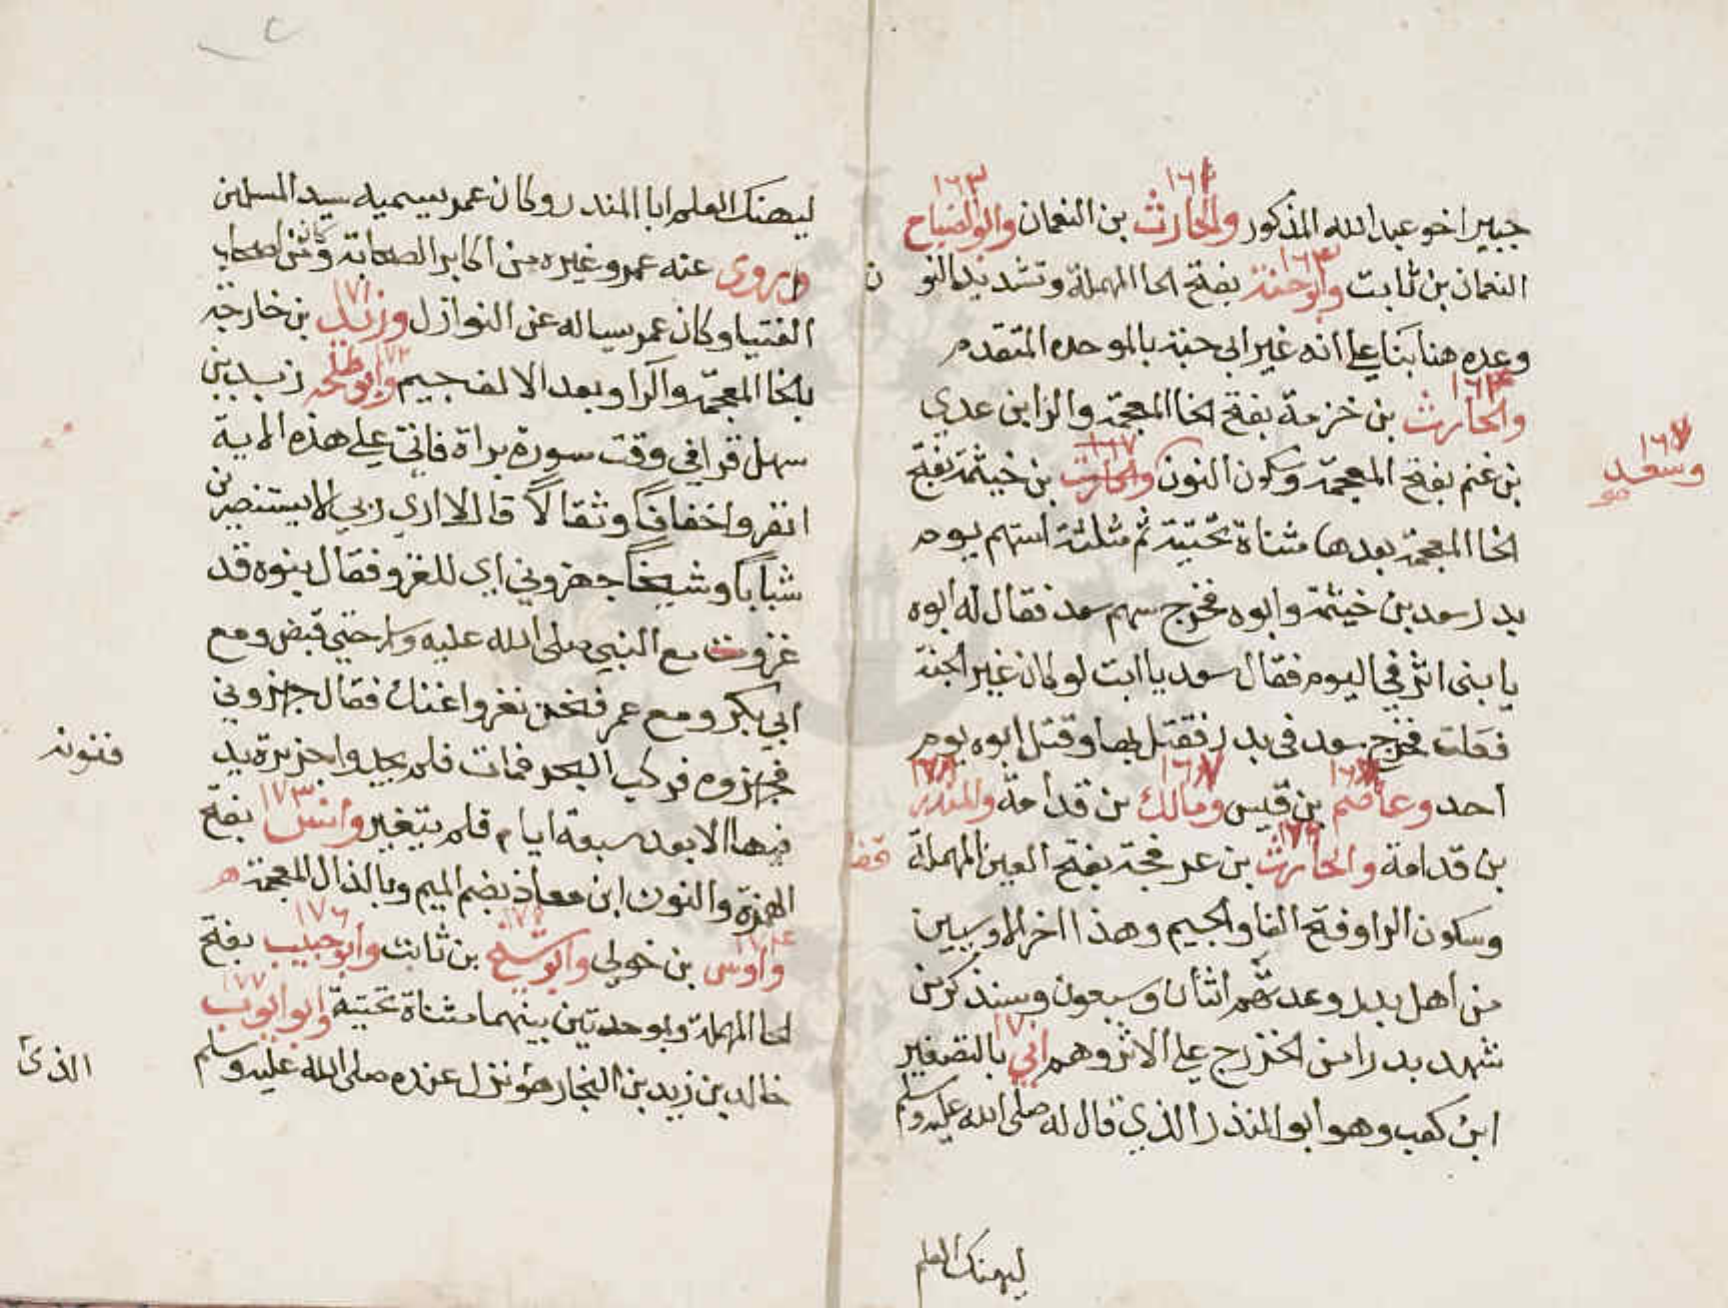 جبير اخو عبد الله المذكور والحارث بن النعمان وابو الضياح
النعمان بن ثابت وابو حنة بفتح الحا المهملة وتشديد النو ن
وعده هنا بنا علي انه غير ابي حبة بالموحده المتقدم
والحارث بن خزمة بفتح الخا المعجمة والزا بن عدي
بن غنم بفتح المعجمة وسكون النون والحارث بن خيثمة بفتح
وسعد
١٦٧
الخا المعجمة بعدها مثناة تحتية ثم مثلثة استهم يوم
بدر سعد بن خيثمة وابوه فخرج سهم سعد فقال له ابوه
يا بني اثرني اليوم فقال سعد يا ابت لو كان غير الجنة
فعلت فخرج سعد في بدر فقتل بها وقتل ابوه يوم
احد وعاصم بن قيس ومالك بن قدامة والمنذر
بن قدامة والحارث بن عرفجة بفتح العين المهملة
وسكون الرا وفتح الفا والجيم وهذا اخر الاوسيين
من اهل بدر وعدتهم اثنان وسبعون وسنذكر من
شهد بدرا من الخزرج علي الاثر وهم ابي بالتصغير
١٧٠
ابن كعب وهو ابو المنذر الذي قال له صلى الله عليه وسلم
ليهنك العلم
ليهنك العلم ابا المنذر وكان عمر يسميه سيد المسلمين
ويروى عنه عمر وغيره من اكابر الصحابة وكان من اصحاب
الفتيا وكان عمر يساله عن النوازل وزيد بن خارجة
١٧١
بالخا المعجمة والرا وبعد الالف جيم وابي طلحة زيد بن
١٧٢
سهل قرا في وقت سورة براة فاتي علي هذه الاية
انفروا خفافا وثقالا قال لا اري ربي الا يستنصرني
شبابا وشيخا جهزوني اي للغزو فقال بنوه قد
غزوت مع النبي صلى الله عليه وسلم حتي قبض ومع
ابي بكر ومع عمر فنحن نغزوا عنك فقال جهزوني
فجهزوه فركب البحر فمات فلم يجدوا جزيرة يد
فنونه
فيها الا بعد سبعة ايام فلم يتغير وانس بفتح
١٧٣
الهمزة والنون ابن معاذ بضم الميم وبالذال المعجمة
واوس بن خولي وابو شيخ بن ثابت وابو حبيب بفتح
١٧٤ ١٧٥ ١٧٦
الحا المهملة وبوحدتين بينهما مثناة تحتية وابو ايوب
١٧٧
خالد بن زيد بن النجار هو نزل عنده صلى الله عليه وسلم
الذي